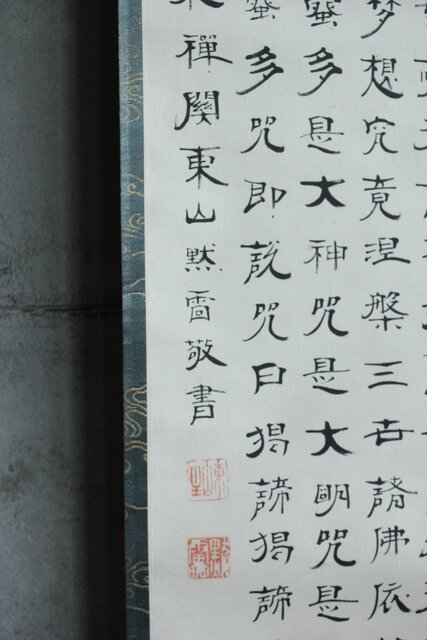 想究竟涅槃三世諸佛依
蜜多是大神咒是大明咒是
蜜多咒即說咒曰揭諦揭諦
禪關東山默雷敬書
默雷